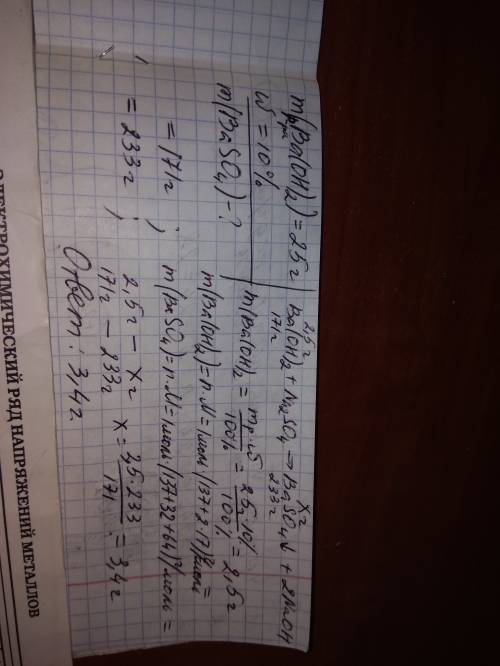 m р-ра (Ba(OH)₂) = 25г
W = 10%
m(BaSO₄) - ?
2,5г xг
Ba(OH)₂ + Na₂SO₄ → BaSO₄↓ + 2NaOH
171г 233г
m(Ba(OH)₂) = mр·ω/100% = 25г·10%/100% = 2,5г
m(Ba(OH)₂) = n·M = 1моль·(137+2·17)г/моль =
= 171г ;
m(BaSO₄) = n·M = 1моль·(137+32+64)г/моль =
= 233г ;
2,5г - xг
171г - 233г
x = 25·233/171 = 3,4г
Ответ: 3,4г.
ЭЛЕКТРОХИМИЧЕСКИЙ РЯД НАПРЯЖЕНИЙ МЕТАЛЛОВ